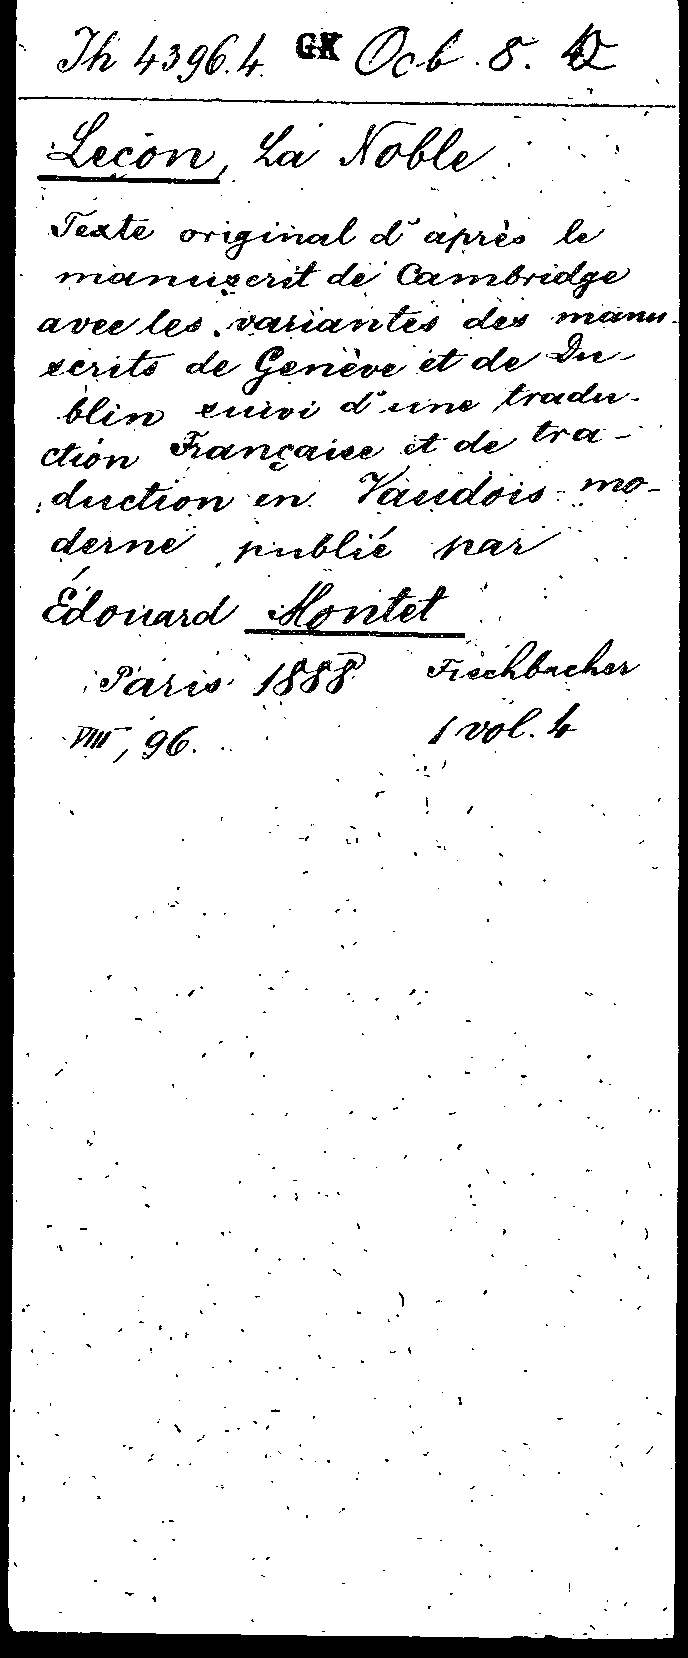 Th 4396.4. GK Ocb. 8. 4o
Leçon, La Noble
Texte original d'après le
manuscrit de Cambridge
avec les variantes des manu-
scrits de Genève et de Du-
blin suivi d'une tradu-
ction Française et de tra-
duction en Vaudois mo-
derne publié par
Édouard Montet
Paris 1888 Fischbacher
VIII, 96. 1 vol. 4